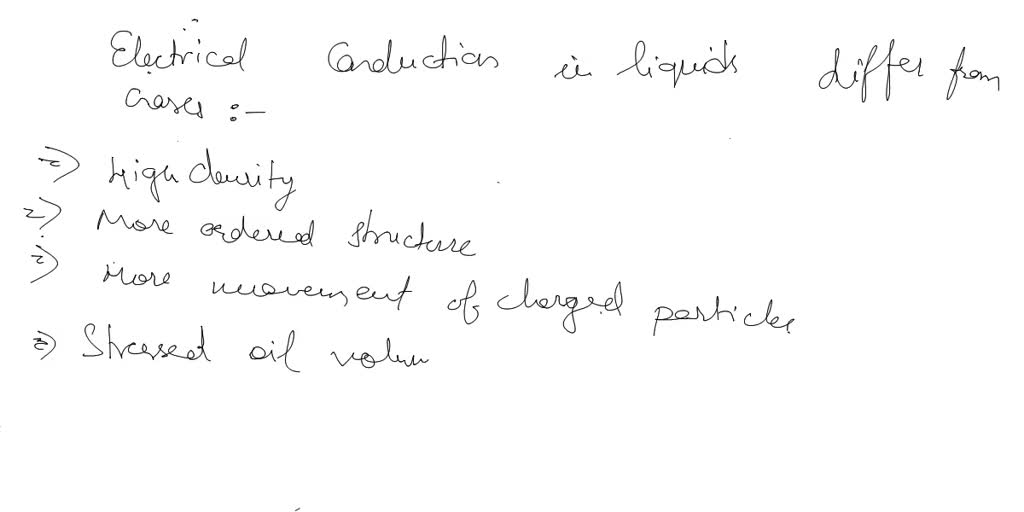 Electrical Conduction in liquids differ from
Gases :-
=> High density
=> More ordered structure
=> More movement of charged particles
=> Stressed oil volum